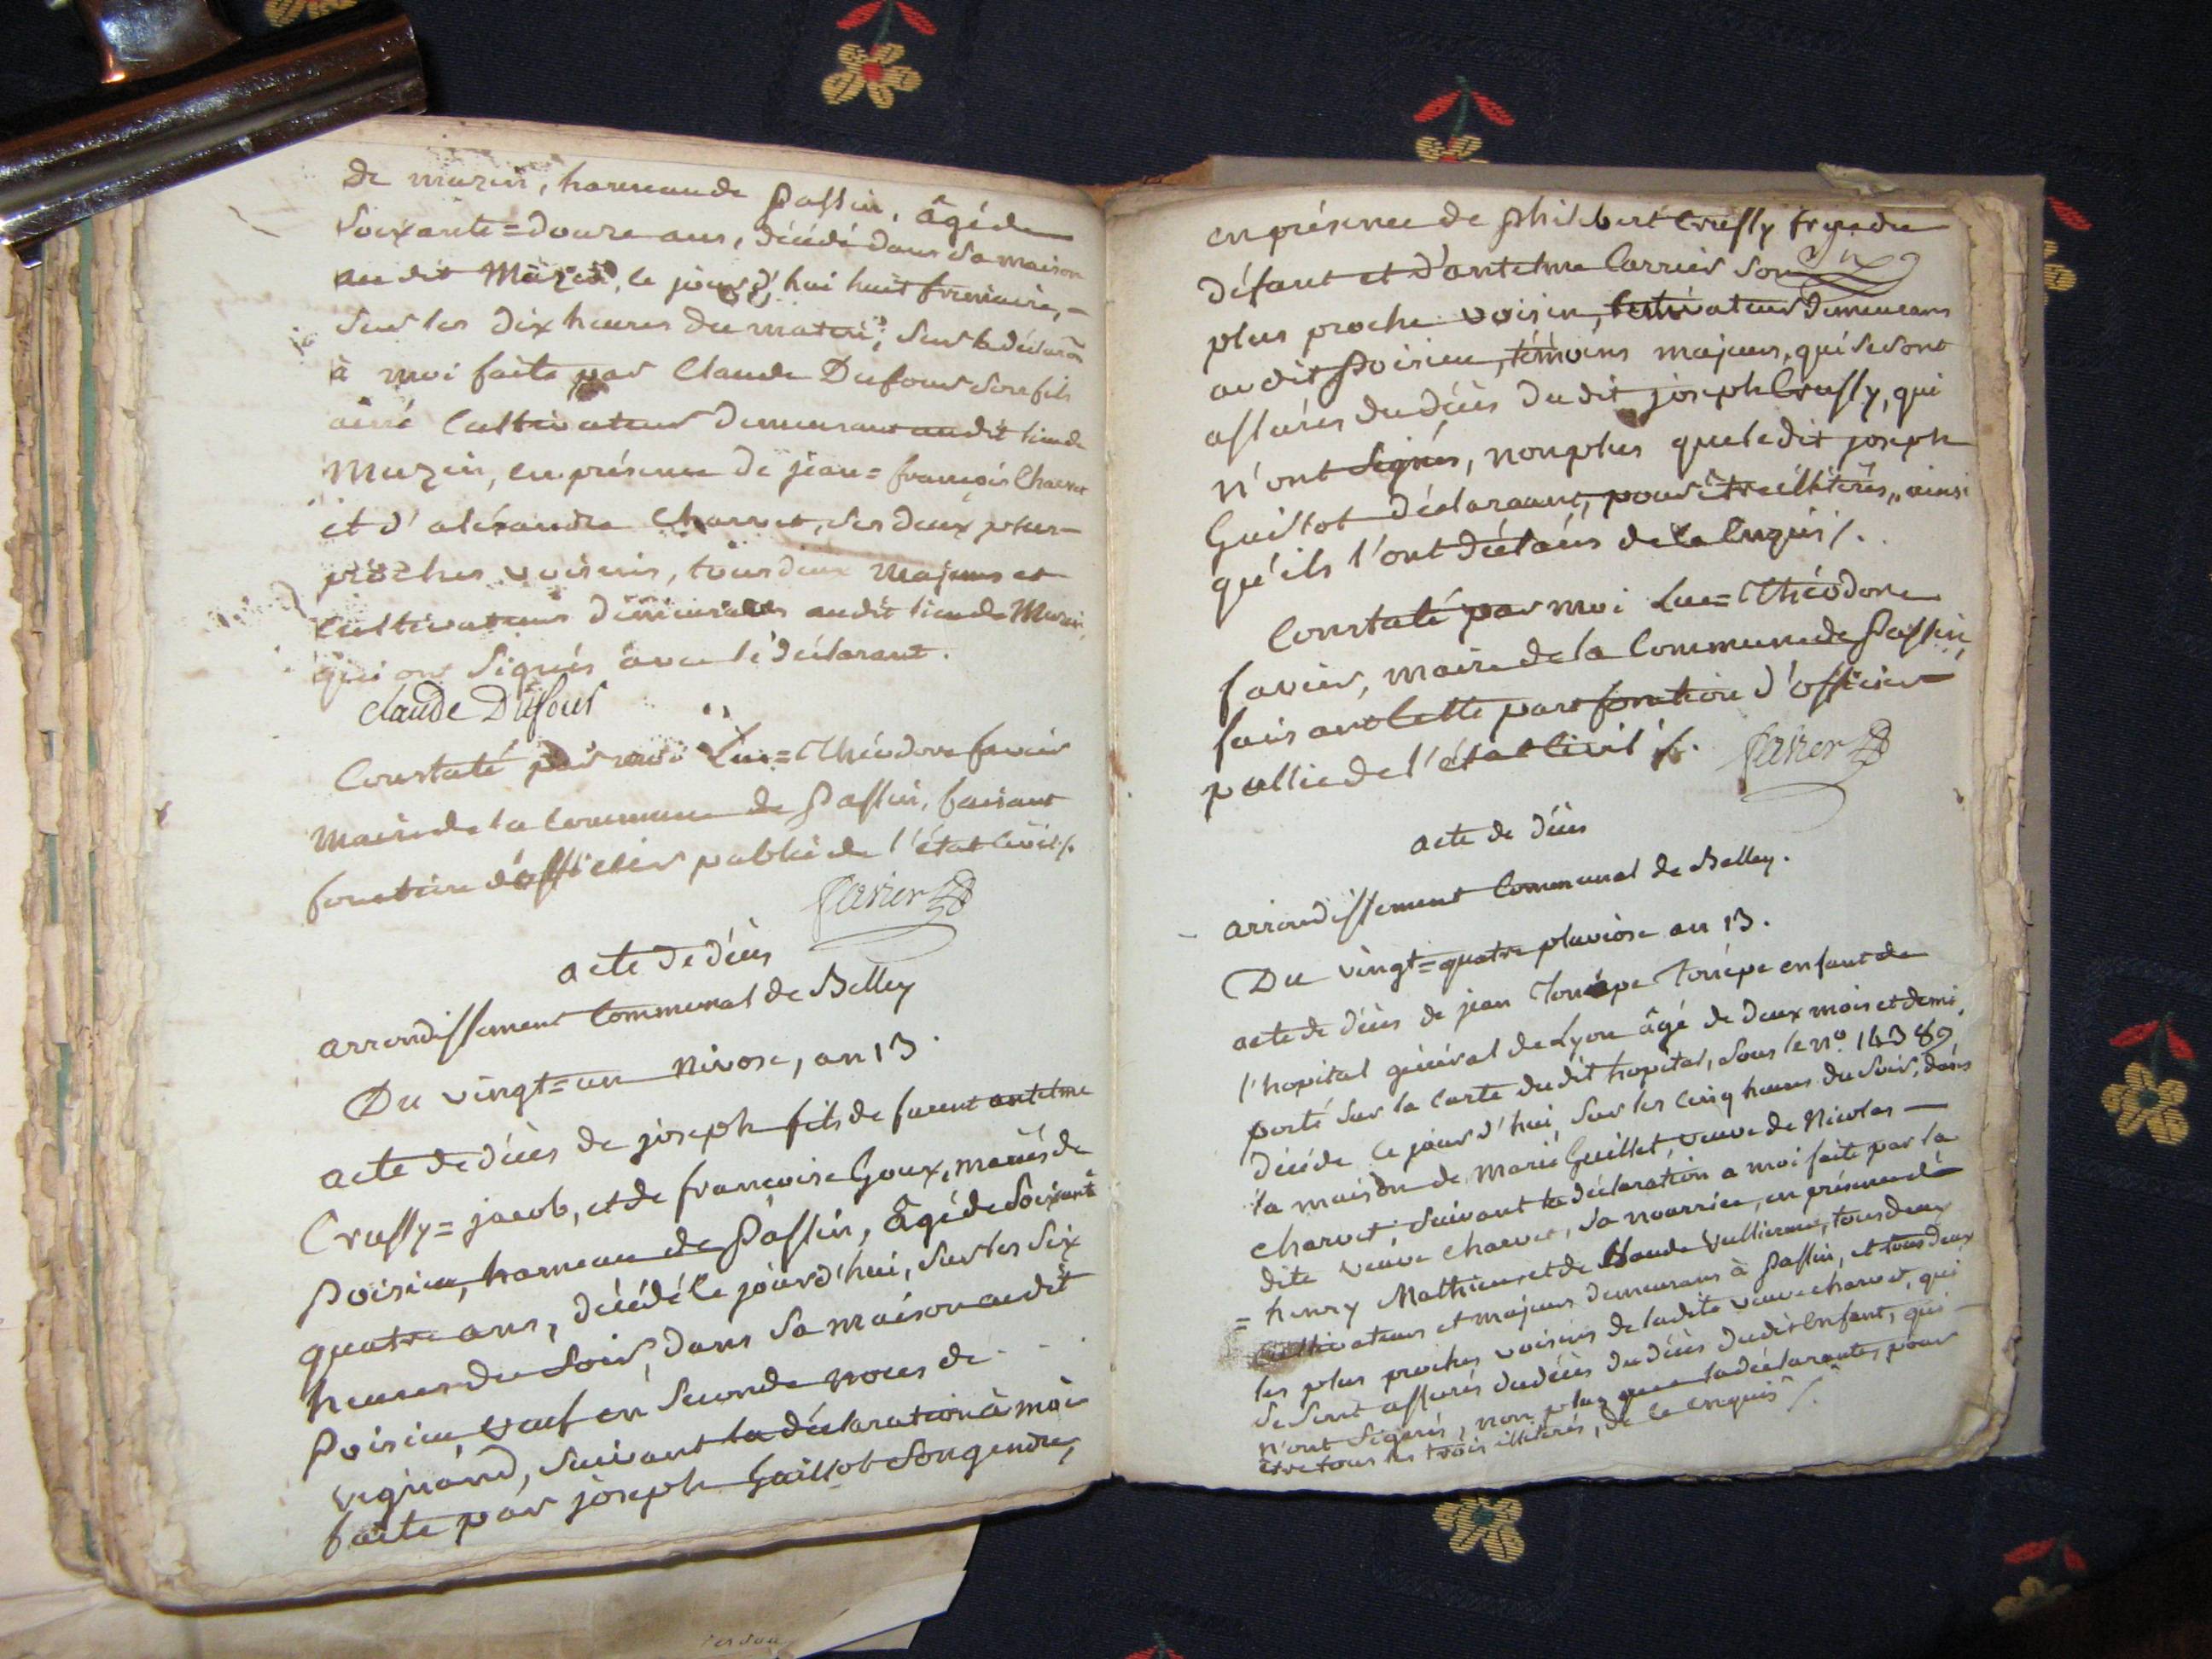 de muzin, hameau de Passin, âgé de
Soixante=douze ans, décédé dans sa maison
au dit Muzin, le jourd'hui huit frimaire,
sur les dix heures du matin, sur la déclaraôn
à moi faite par Claude Dufour son fils
ainé Cultivateur demeurant audit lieu de
Muzin, en présence de jean=françois Charvet
et d'aléxandre Charvet, ses deux plus
proches voisins, tous deux majeurs et
Cultivateurs demeurants audit lieu de Muzin,
qui ont Signés avec le déclarant.
Claude Dufour
Constaté par moi Luc=Théodore favier
Maire de la Commune de Passin, faisant
fonction d'officier public de l'état Civil /.
favier
acte de décès
arrondissement Communal de Belley
Du vingt=un Nivose, an 13.
acte de décès de joseph fils de feu antelme
Crussy=jacob, et de francoise Goux, mariés de
Poisieu, hameau de Passin, âgé de Soixante
quatre ans, décédé le jourd'hui, sur les Six
heures du Soir, dans Sa maison audit
Poisieu, veuf en Seconde noces de
vignand, Suivant la déclaration à moi
faite par joseph Guillot Son gendre,
en présence de philibert Crussy frère du
défunt et d'antelme Carrier Son
plus proche voisin, Cultivateurs demeurans
audit Poisieu, témoins majeurs, qui se sont
assurés du décès dudit joseph Crussy, qui
n'ont Signés, non plus que ledit joseph
Guillot déclarant, pour être illitérés, ainsi
qu'ils l'ont déclarés de ce Enquis /.
Constaté par moi Luc=Théodore
favier, maire de la Commune de Passin,
faisant Cette part fonction d'officier
public de l'état Civil /. favier
acte de décès
arrondissement Communal de Belley.
Du vingt=quatre pluviose an 13.
acte de décès de jean Tonèpe Tonèpe enfant de
l'hopital général de Lyon âgé de deux mois et demi,
porté sur la Carte dudit hopital, sous le n.º 14389,
décédé le jourd'hui, sur les Cinq heures du Soir, dans
la maison de marie Guillet, veuve de Nicolas
Charvet, Suivant la déclaration a moi faite par la
dite veuve Charvet, sa nourrice, en présence de
= henry Mathieu et de Claude Vullierme, tous deux
Cultivateurs et majeurs demeurans à Passin, et tous deux
les plus proches voisins de ladite veuve charvet, qui
se sont assurés du décès du décès dudit Enfant, qui
n'ont Signés, non plus que la déclarante, pour
être tous les trois illitérés, de Ce enquis /.